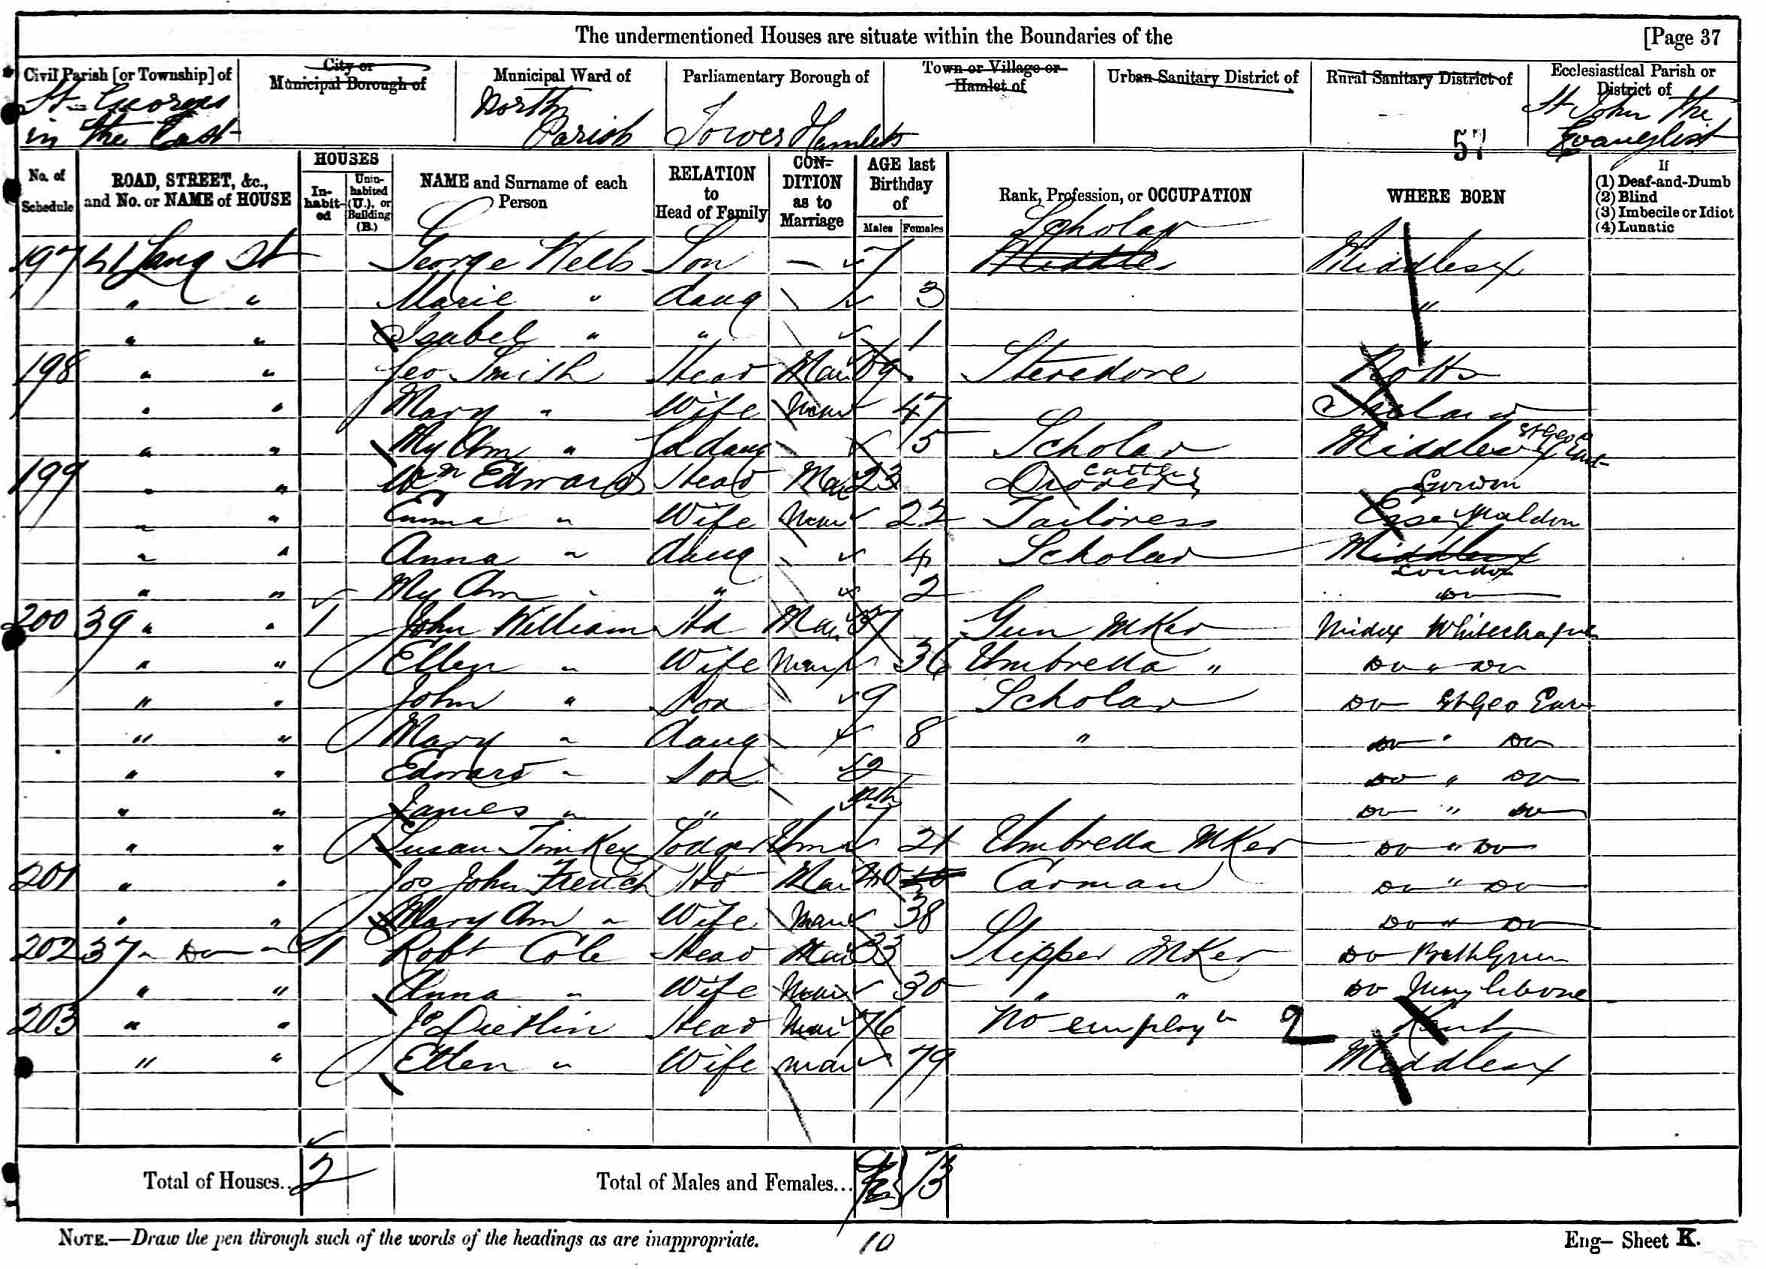 The undermentioned Houses are situate within the Boundaries of the [Page 37
Civil Parish [or Township] of City or Municipal Borough of Municipal Ward of Parliamentary Borough of Town or Village or Hamlet of Urban Sanitary District of Rural Sanitary District of Ecclesiastical Parish or District of
St Georges in the East North Parish Tower Hamlets 57 St John the Evanglist
No. of Schedule ROAD, STREET, &c., and No. or NAME of HOUSE HOUSES In-habit-ed Unin-habited (U.), or Building (B.) NAME and Surname of each Person RELATION to Head of Family CON-DITION as to Marriage AGE last Birthday of Males Females Rank, Profession, or OCCUPATION WHERE BORN If (1) Deaf-and-Dumb (2) Blind (3) Imbecile or Idiot (4) Lunatic
197 41 St George Wells Son - 7 Scholar Middlesex
" " Marie " daug 3 "
" " Isabel " " 1 "
198 " " Geo Smith Head Mar 59 Stevedore Notts
" " Mary " Wife Mar 47 Ireland
" " My Ann " daug 15 Scholar Middlesex St Geo East
199 " " Wm Edwards Head Mar 23 Cattle Drover
" " Emma " Wife Mar 22 Tailoress Essex Maldon
" " Anna " daug 4 Scholar Middlesex London
" " My Ann " " 2 Do
200 39 " " 1 John William Hd Mar 37 Gun MKer Midex Whitechapel
" " Ellen " Wife Mar 36 Umbrella " Do " Do
" " John " Son 9 Scholar Do St Geo East
" " Mary " daug 8 " Do " Do
" " Edward " Son 2 Do " Do
" " James " " Mth Do " Do
" " Susan Lodger Unm 21 Umbrella MKer Do " Do
201 " " Jos John French Hd Mar 40 Carman Do " Do
" " Mary Ann " Wife Mar 38 Do " Do
202 37 " Do " 1 Robt Cole Head Mar 33 Slipper MKer Do Beth Green
" " Anna " Wife Mar 30 " " Do Marylebone
203 " " Jo Head Mar 76 No employ 2 Kent
" " Ellen " Wife Mar 79 Middlesex
Total of Houses.. 2 Total of Males and Females... 13
10
NOTE.—Draw the pen through such of the words of the headings as are inappropriate. Eng— Sheet K.